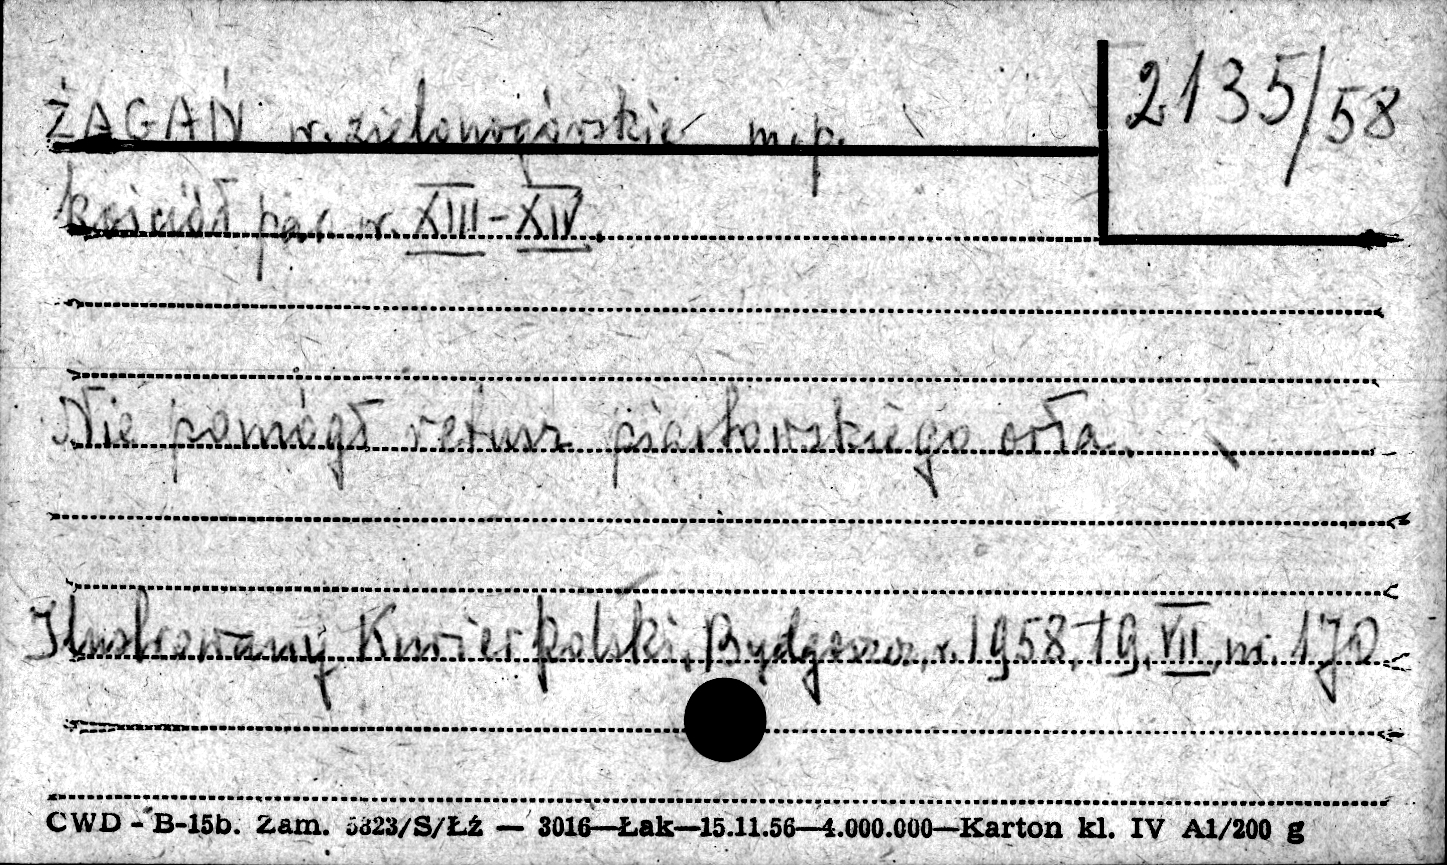 2135/58
ŻAGAŃ w. zielonogórskie m. p.
kościół par. w. XIII-XIV.
Nie pomógł retusz piastowskiego orła.
Ilustrowany Kurier Polski, Bydgoszcz, r. 1958, 19.VII, nr. 170
CWD - B-15b. Zam. 5823/S/Łż — 3016—Łak—15.11.56—4.000.000—Karton kl. IV A1/200 g